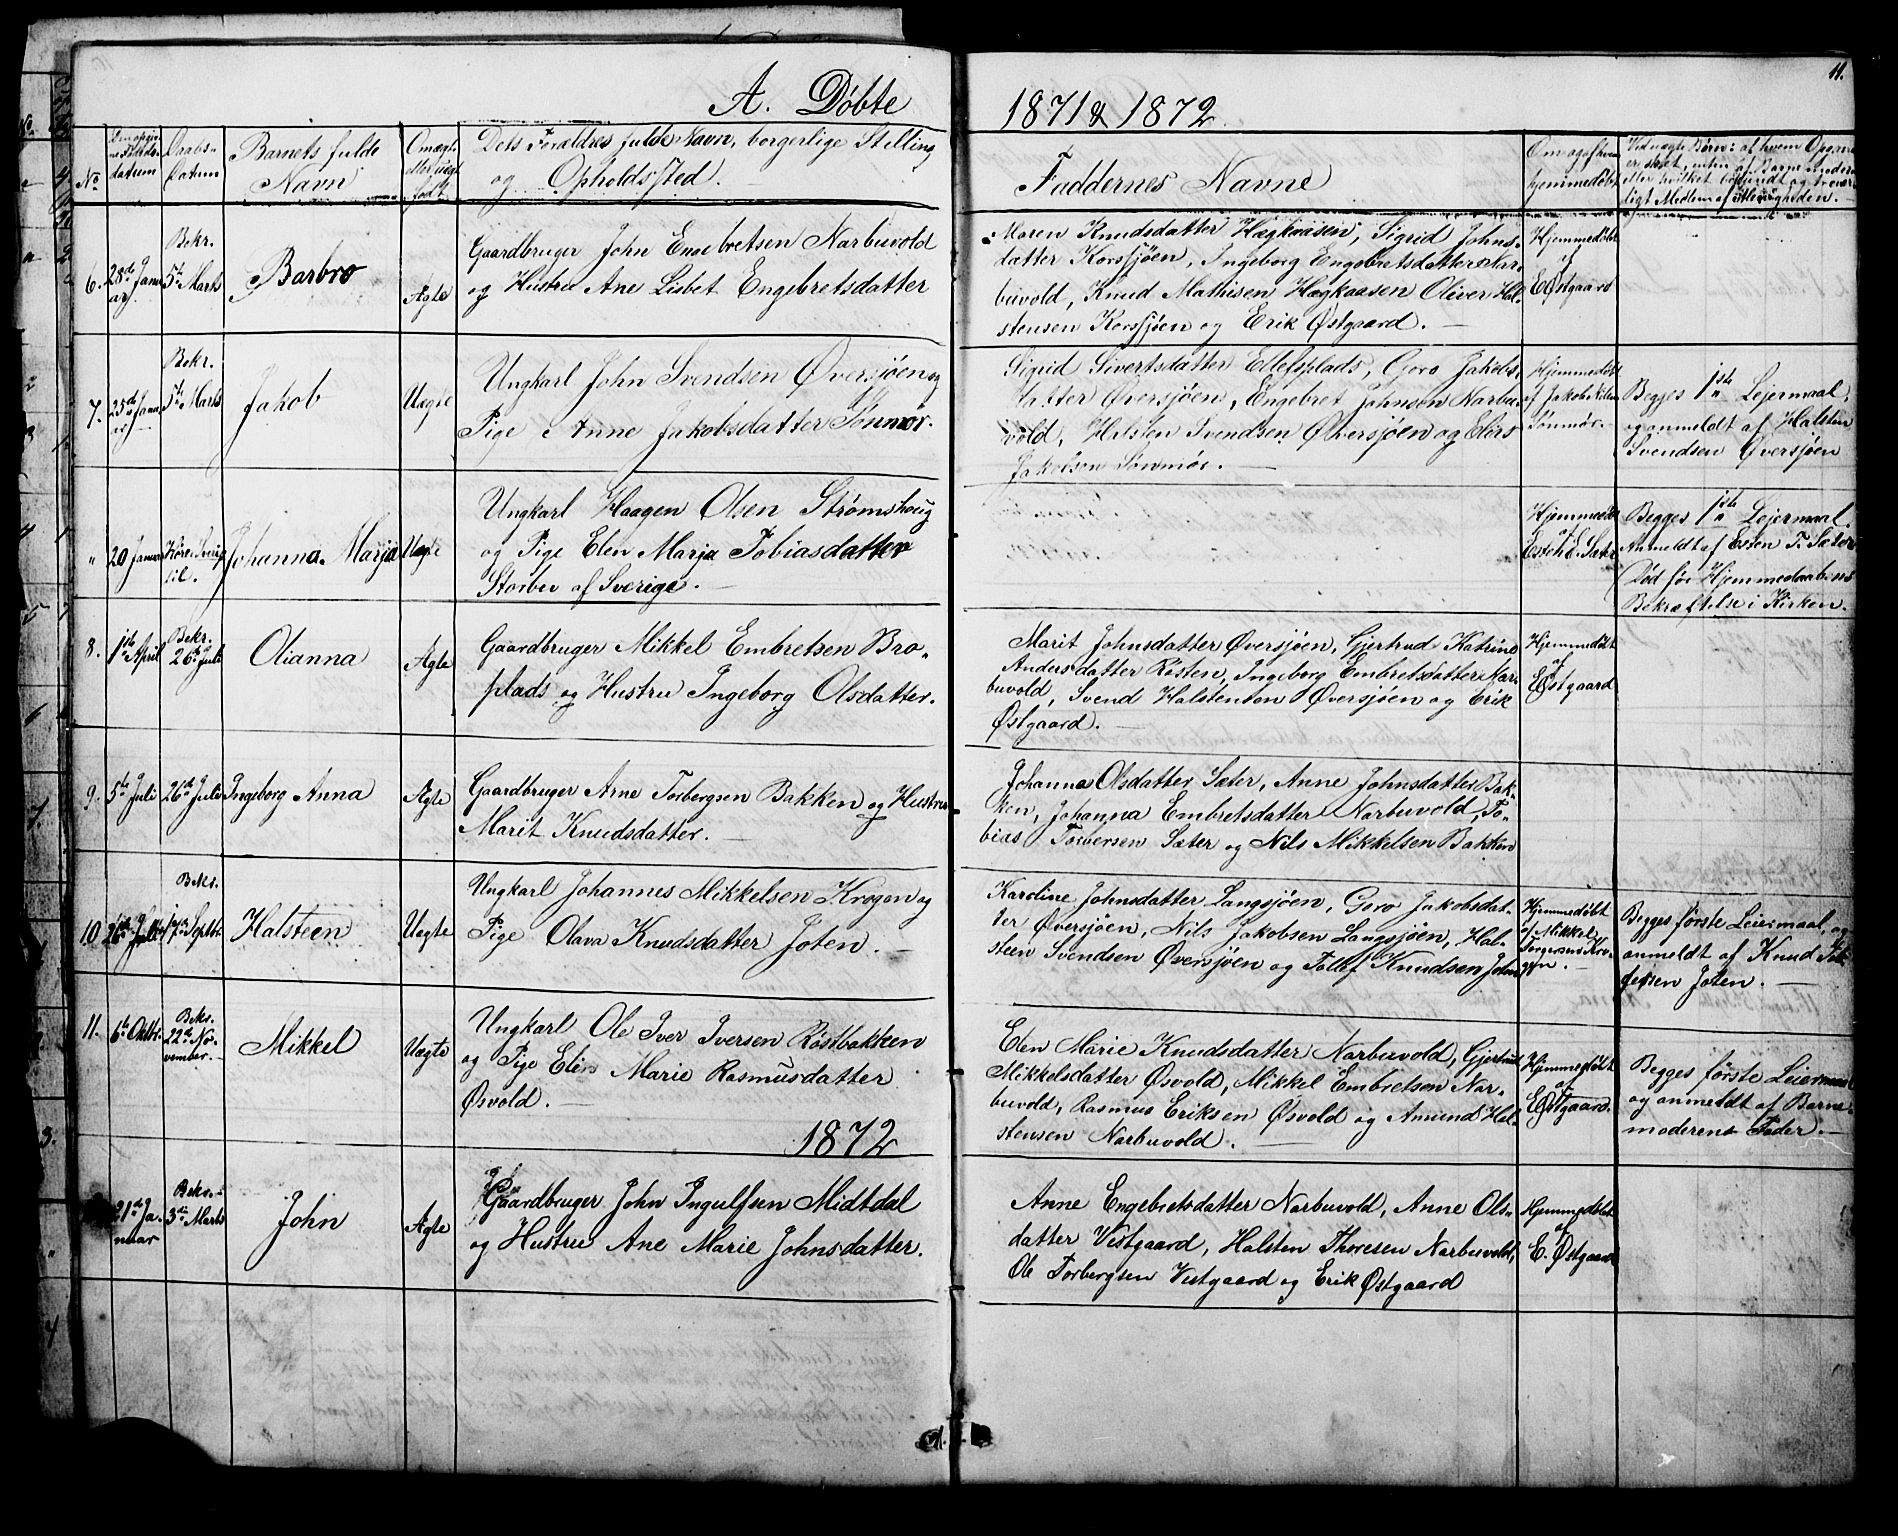 11.
A. Döbte
1871 & 1872
No
Daabs-
Datum
Barnets fulde
Navn
Omægte
født
Dets Forældres fulde Navn, borgerlige Stilling
og Opholdssted.
Faddernes Navne
Om og af hvem
hjemmedøbt
Ved uægte Børn: af hvem Opgave
ligt Medlem af
6.
28de Janu-
ar
Bekr.
5te Marts
Barbro
Ægte
Gaardbruger John Engebretsen Narbuvold
og Hustru Ane Lisbet Engebretsdatter
Maren Knudsdatter Hægkaasen, Sigrid Johns-
datter Korssjöen, Ingeborg Engebretsdatter Nar-
buvold, Knud Mathisen Hægkaasen Oliver Hal-
stensen Korssjöen og Erik Østgaard.
Hjemmedöbt
af
E Østgaard
7.
25de Janu
ar
Bekr.
5te Marts
Jakob
Uægte
Ungkarl John Svendsen Øversjöen og
Pige Anne Jakobsdatter Sönmör.
Sigrid Sivertsdatter Ellefsplads, Goro Jakobs-
datter Øversjöen, Engebret Johnsen Narbu-
vold, Halsten Svendsen Øversjöen og
Jakobsen Sönmör.
Hjemmedöbt
af Jakob Nilsen
Sönmör.
Begges 1ste Lejermaal,
og anmeldt af Halsten
Svendsen Øversjöen
"
20 Januar
Johanna Marja
Uægte
Ungkarl Haagen Olsen Strömshoug
og Pige Elen Marja Tobiasdatter
Storbu af Sverige.
Hjemmedöbt
af
Esten E. Sæter
Begges 1ste Lejermaal.
Anmeldt af Esten T. Sæter
Død før Hjemmedaabens
Bekræftelse i Kirken.
8.
1ste April
Bekr.
26de Juli
Olianna
Ægte
Gaardbruger Mikkel Embretsen Bro-
plads og Hustru Ingeborg Olsdatter.
Marit Johnsdatter Øversjöen, Gjertrud Katrine
Andersdatter Rösten, Ingeborg Embretsdatter Nar-
buvold, Svend Halstensen Øversjöen og Erik
Østgaard.
Hjemmedöbt
af
E Østgaard
9.
5te Juli
26de Juli
Ingeborg Anna
Ægte
Gaardbruger Arne Torbergsen Bakken og Hustru
Marit Knudsdatter.
Johanna Olsdatter Sæter, Anne Johnsdatter Bak-
ken, Johanna Embretsdatter Narbuvold, To-
bias Torbersen Sæter og Nils Mikkelsen Bakken
10
26de Juli
Bekr.
17de Septbr
Halsteen
Uægte
Ungkarl Johannes Mikkelsen Krogen og
Pige Olava Knudsdatter Joten.
Karoline Johnsdatter Langsjöen, Goro Jakobsdat-
ter Øversjöen, Nils Jakobsen Langsjöen, Hal-
steen Svendsen Øversjöen og Tollef Knudsen Joten
Hjemmedöbt
af Mikkel
Torgersens Kro-
gen.
Begges förste Leiermaal, og
anmeldt af Knud Tol-
lefsen Joten.
11.
6te Oktbr.
Bekr.
22de No-
vember.
Mikkel
Uægte
Ungkarl Ole Iver Iversen Röstbakken
og Pige Elen Marie Rasmusdatter
Øsvold.
Elen Marie Knudsdatter Narbuvold, Gjertrud
Mikkelsdatter Øsvold, Mikkel Embretsen Nar-
buvold, Rasmus Eriksen Øsvold og Amund Hal-
stensen Narbuvold.
Hjemmedöbt
af
E Østgaard.
Begges förste Leiermaal
og anmeldt af Barne-
moderens Fader.
1872
21de Ja-
nuar
Bekr.
3die Marts
John
Ægte
Gaardbruger John Ingulfsen Midtdal
og Hustru Ane Marie Johnsdatter.
Anne Engebretsdatter Narbuvold, Anne Ols-
datter Vestgaard, Halsten Thoresen Narbuvold,
Ole Torbergsen Vestgaard og Erik Østgaard
Hjemmedöbt
af
E. Østgaard